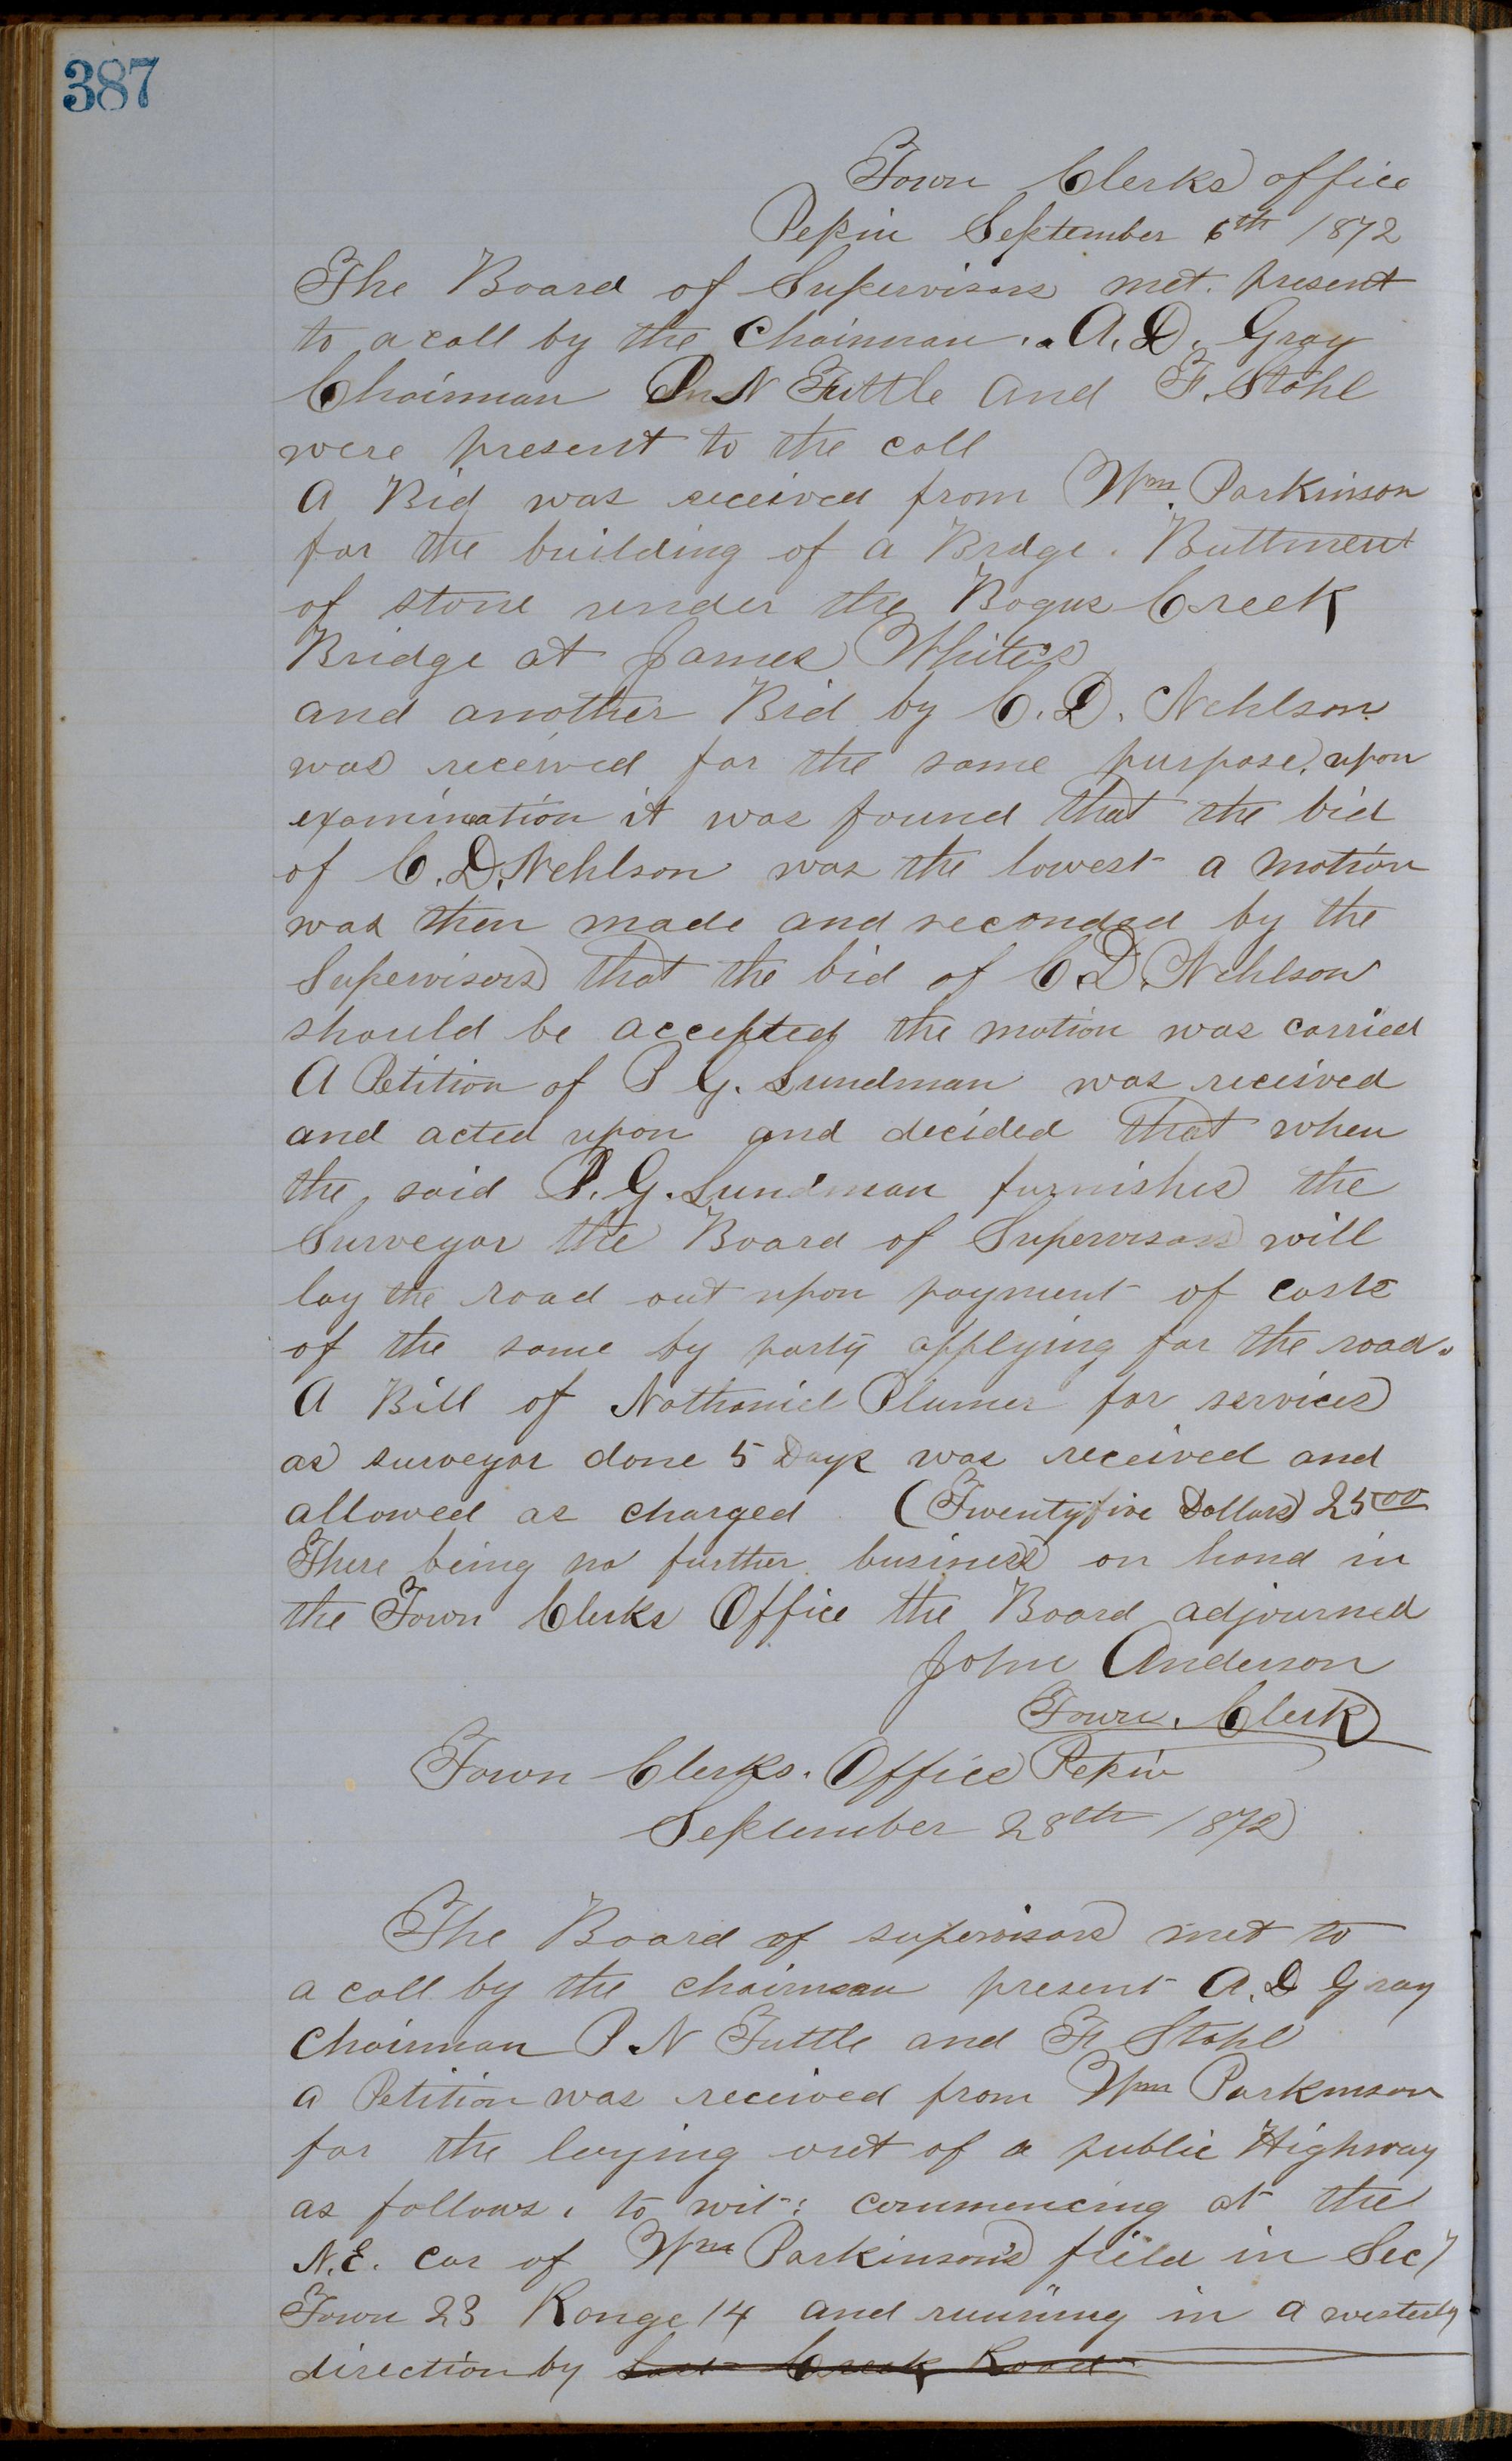 387
Town Clerks office
Pepin September 6th 1872
The Board of Supervisors met. present
to a call by the Chairman. A. D. Gray
Chairman P N Tuttle and F. Stahl
were present to the call
A Bid was received from Wm. Parkinson
for the building of a Bridge. Buttment
of stone under the Bogus Creek
Bridge at James White's
and another Bid by C. D. Nehlson
was received for the same purpose, upon
examination it was found that the bid
of C. D. Nehlson was the lowest a motion
was then made and seconded by the
Supervisors that the bid of C. D. Nehlson
should be accepted the motion was carried
A Petition of P G. Lundman was received
and acted upon and decided that when
the said P. G. Lundman furnishes the
Surveyor the Board of Supervisors will
lay the road out upon payment of costs
of the same by party applying for the road.
A Bill of Nathaniel Plumer for services
as surveyor done 5 Days was received and
allowed as charged (Twentyfive Dollars) 25 00
There being no further business on hand in
the Town Clerks Office the Board adjourned
John Anderson
Town. Clerk
Town Clerks. Office Pepin
September 28th 1872
The Board of supervisors met to
a call by the chairman present A. D Gray
Chairman P. N Tuttle and F. Stahl
a Petition was received from Wm Parkinson
for the laying out of a public Highway
as follows, to wit: commencing at the
N. E. cor of Wm Parkinson's field in Sec 7
Town 23 Range 14 and running in a westerly
direction by Creek Road